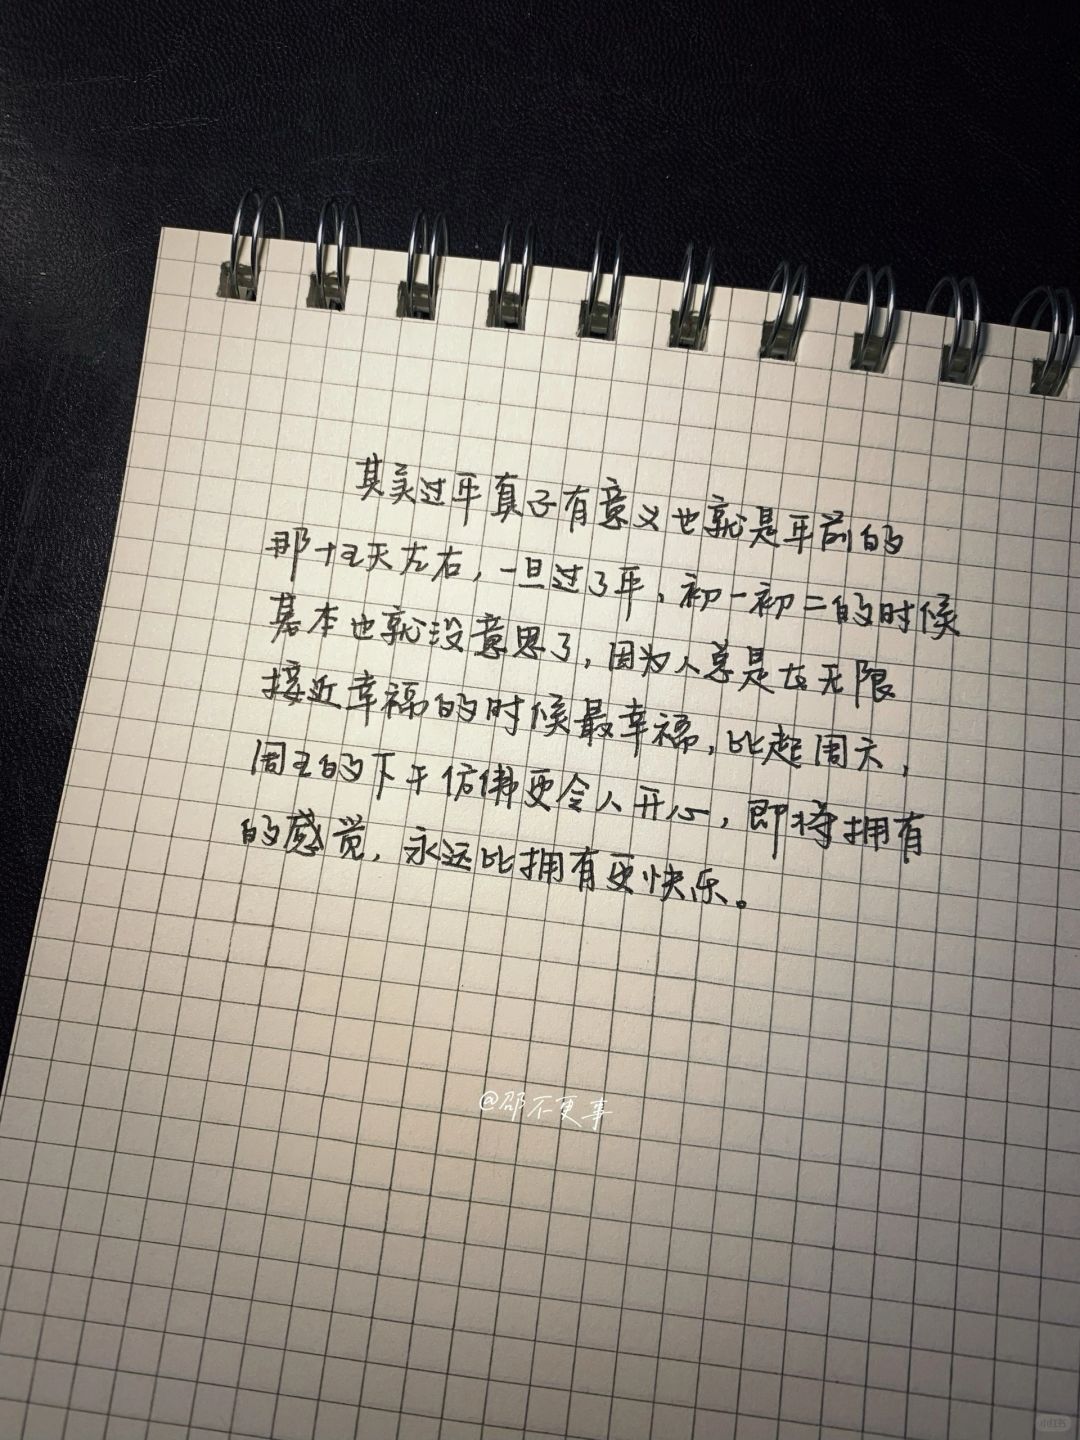 其实过年真正有意义也就是年前的
那十五天左右，一旦过了年，初一初二的时候
基本也就没意思了，因为人总是在无限
接近幸福的时候最幸福，比起周六，
周五的下午仿佛更令人开心，即将拥有
的感觉，永远比拥有更快乐。
@邵不更事
小红书